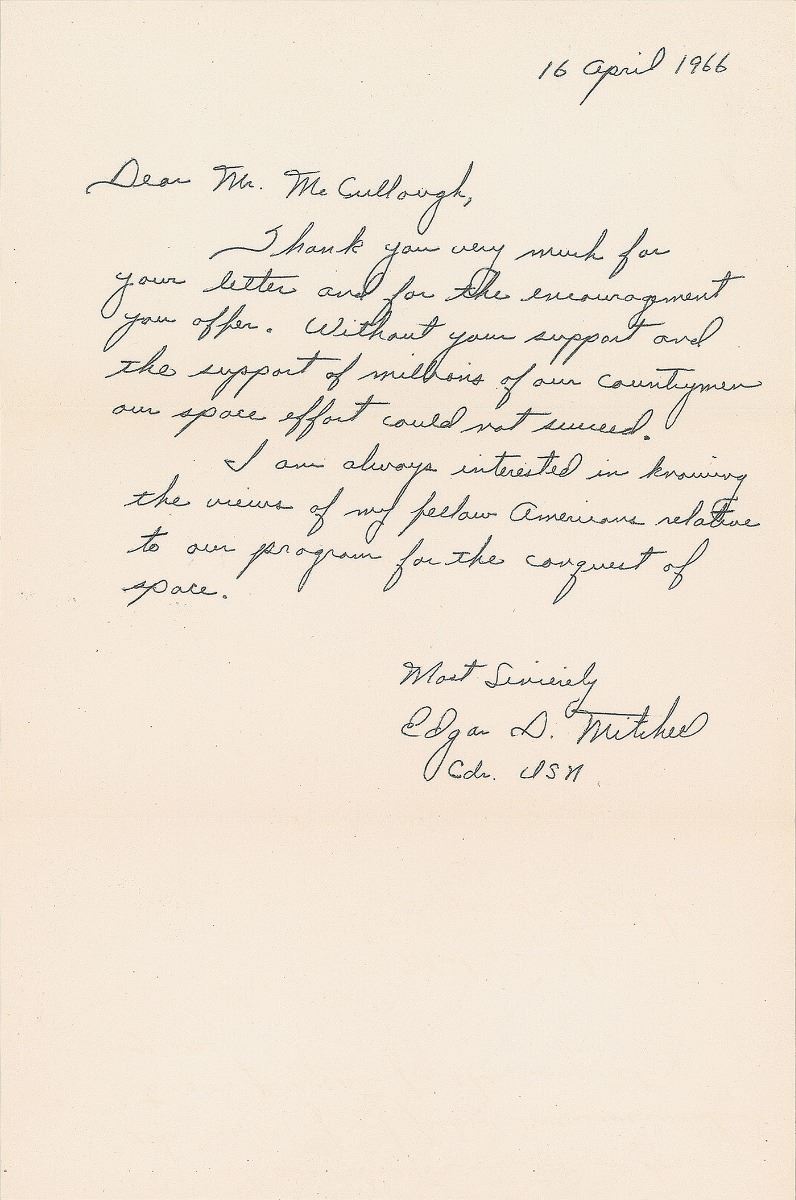 16 April 1966
Dear Mr. McCullough,
Thank you very much for
your letter and for the encouragement
you offer. Without your support and
the support of millions of our countrymen
our space effort could not succeed.
I am always interested in knowing
the views of my fellow Americans relative
to our program for the conquest of
space.
Most Sincerely
Edgar D. Mitchell
Cdr. USN